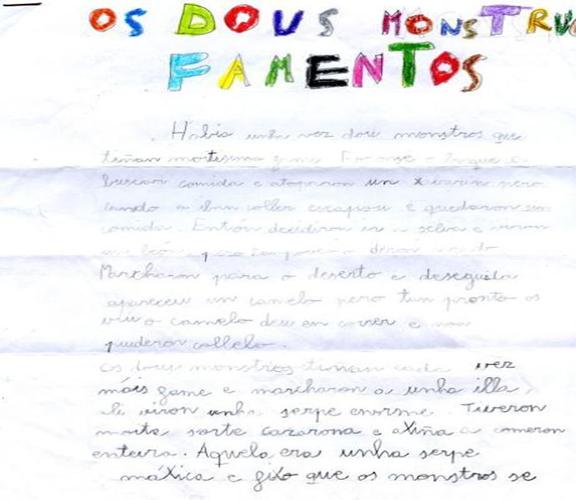 OS DOUS MONSTRUO
FAMENTOS
Habia unha vez dous monstros que
tiñan moitisima fame
buscar comida e atoparon un xabarín pero
cando o iban coller escapou e quedaron sen
comida. Entón decidiron ir a selva e viron
un león pero tampouco deron
Marcharon para o deserto e deseguida
apareceu un camelo pero tan pronto os
viu o camelo deu en correr e non
puideron collelo.
Os dous monstros tiñan cada vez
máis fame e marcharon a unha illa,
ali viron unha serpe enorme. Tuveron
moita sorte cazarona e axiña a comeron
enteira. Aquela era unha serpe
máxica e fixo que os monstros se